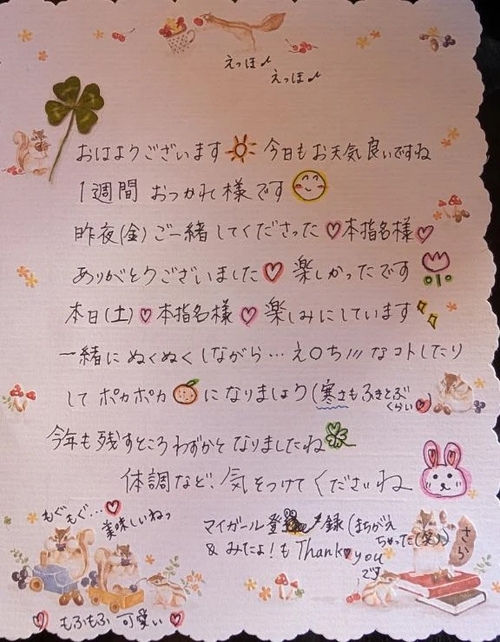 えっほ♪
えっほ♪
おはようございます☀今日もお天気良いですね
1週間 おつかれ様です
昨夜(金)ご一緒してくださった♡本指名様♡
ありがとうございました♡楽しかったです
本日(土)♡本指名様♡楽しみにしています
一緒にぬくぬくしながら…え〇ち///なコトしたり
してポカポカ になりましょう(寒さもふきとぶ
くらい
今年も残すところわずかとなりましたね
体調など、気をつけてくださいね
もぐもぐ…♡
美味しいねっ
マイガール登録(まちがえ
ちゃった(笑))
& みたよ!もThank♥you
です
さら
♡もふもふ可愛い♡